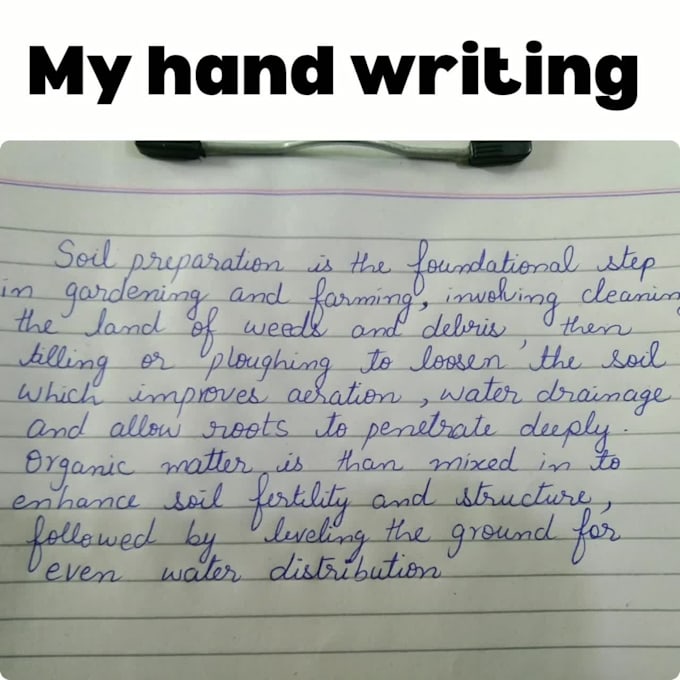 My hand writing
Soil preparation is the foundational step
in gardening and farming, involving cleanin
the land of weeds and debris, then
tilling or ploughing to loosen the soil
which improves aeration, water drainage
and allow roots to penetrate deeply.
Organic matter is than mixed in to
enhance soil fertility and structure,
followed by leveling the ground for
even water distribution